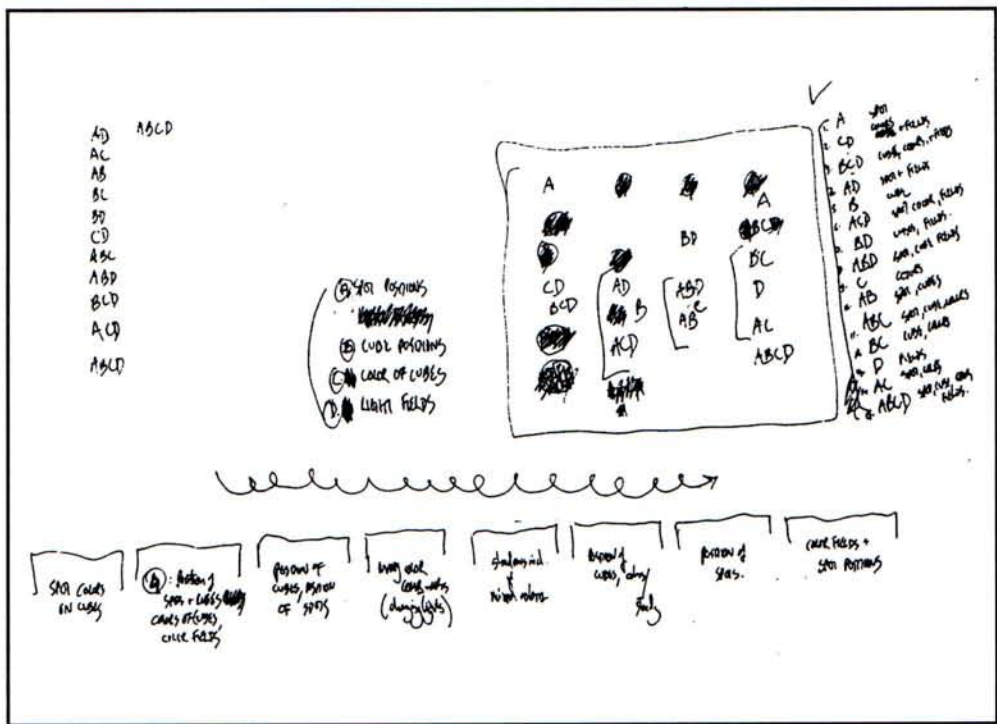 AD ABCD
AC
AB
BC
BD
CD
ABC
ABD
BCD
ACD
ABCD
SPOT POSITIONS
B CUBE POSITIONS
C COLOR OF CUBES
D. LIGHT FIELDS
A
CD
BCD
AD
B
ACD
BD
ABD
AB C
A
ABCD
BC
D
AC
ABCD
1. A SPOT
2. CD + FIELDS
3. BCD CUBE, COLORS, + FIELDS
AD SPOT + FIELDS
B CUBE
ACD SPOT, COLOR, FIELDS
BD CUBES, FIELDS.
ABD SPOT, CUBE FIELDS
C COLORS
AB SPOT, CUBES
ABC SPOT, CUBE, COLORS
BC CUBE, COLORS
D FIELDS
AC SPOT, COLORS
ABCD SPOT, CUBE, COLORS
FIELDS.
SPOT COLORS
ON CUBES
: Position of
SPOTS + CUBES
COLORS OF CUBES,
COLOR FIELDS
POSITION OF
CUBES, POSITION
OF SPOTS
color
(changing lights)
Position of
cubes, colors
POSITION OF
SPOTS.
COLOR FIELDS +
SPOT POSITIONS